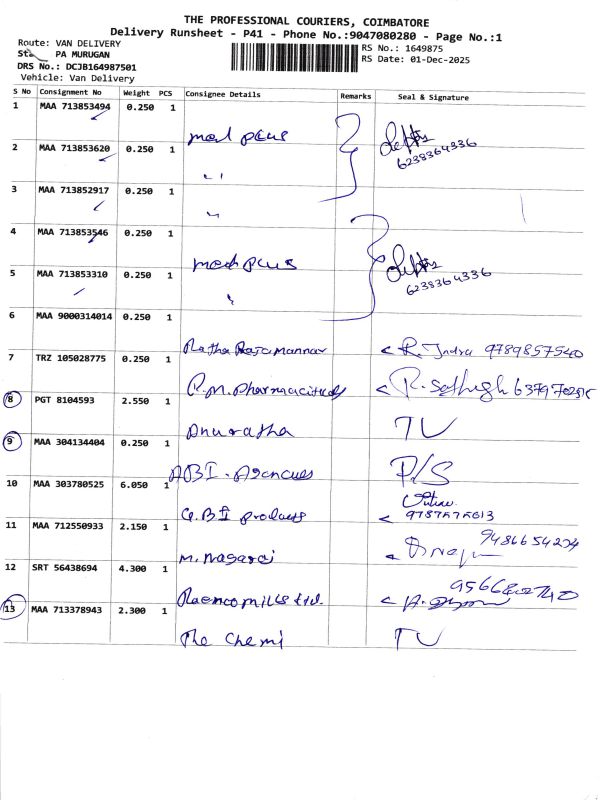 THE PROFESSIONAL COURIERS, COIMBATORE
Delivery Runsheet - P41 - Phone No.:9047080280 - Page No.:1
Route: VAN DELIVERY
RS No.: 1649875
PA MURUGAN
RS Date: 01-Dec-2025
DRS No.: DCJB164987501
Vehicle: Van Delivery
S No Consignment No Weight PCS Consignee Details Remarks Seal & Signature
1 MAA 713853494 0.250 1
med plus
6238364336
2 MAA 713853620 0.250 1
3 MAA 713852917 0.250 1
4 MAA 713853546 0.250 1
med plus
6238364336
5 MAA 713853310 0.250 1
6 MAA 9000314014 0.250 1
Ratha Rajamannar R. Indra 9789857540
7 TRZ 105028775 0.250 1
P.M. Pharmacitucals
8 PGT 8104593 2.550 1
Anuratha TV
9 MAA 304134404 0.250 1
ABI. Agencues P/S
10 MAA 303780525 6.050 1
G.B.I products
11 MAA 712550933 2.150 1
M. Nagaraj
12 SRT 56438694 4.300 1
13 MAA 713378943 2.300 1
The Chemi TV